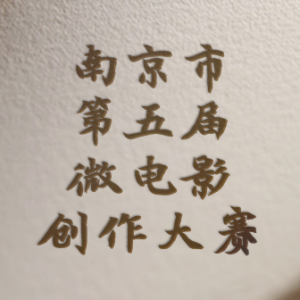 南京市
第五届
微电影
创作大赛